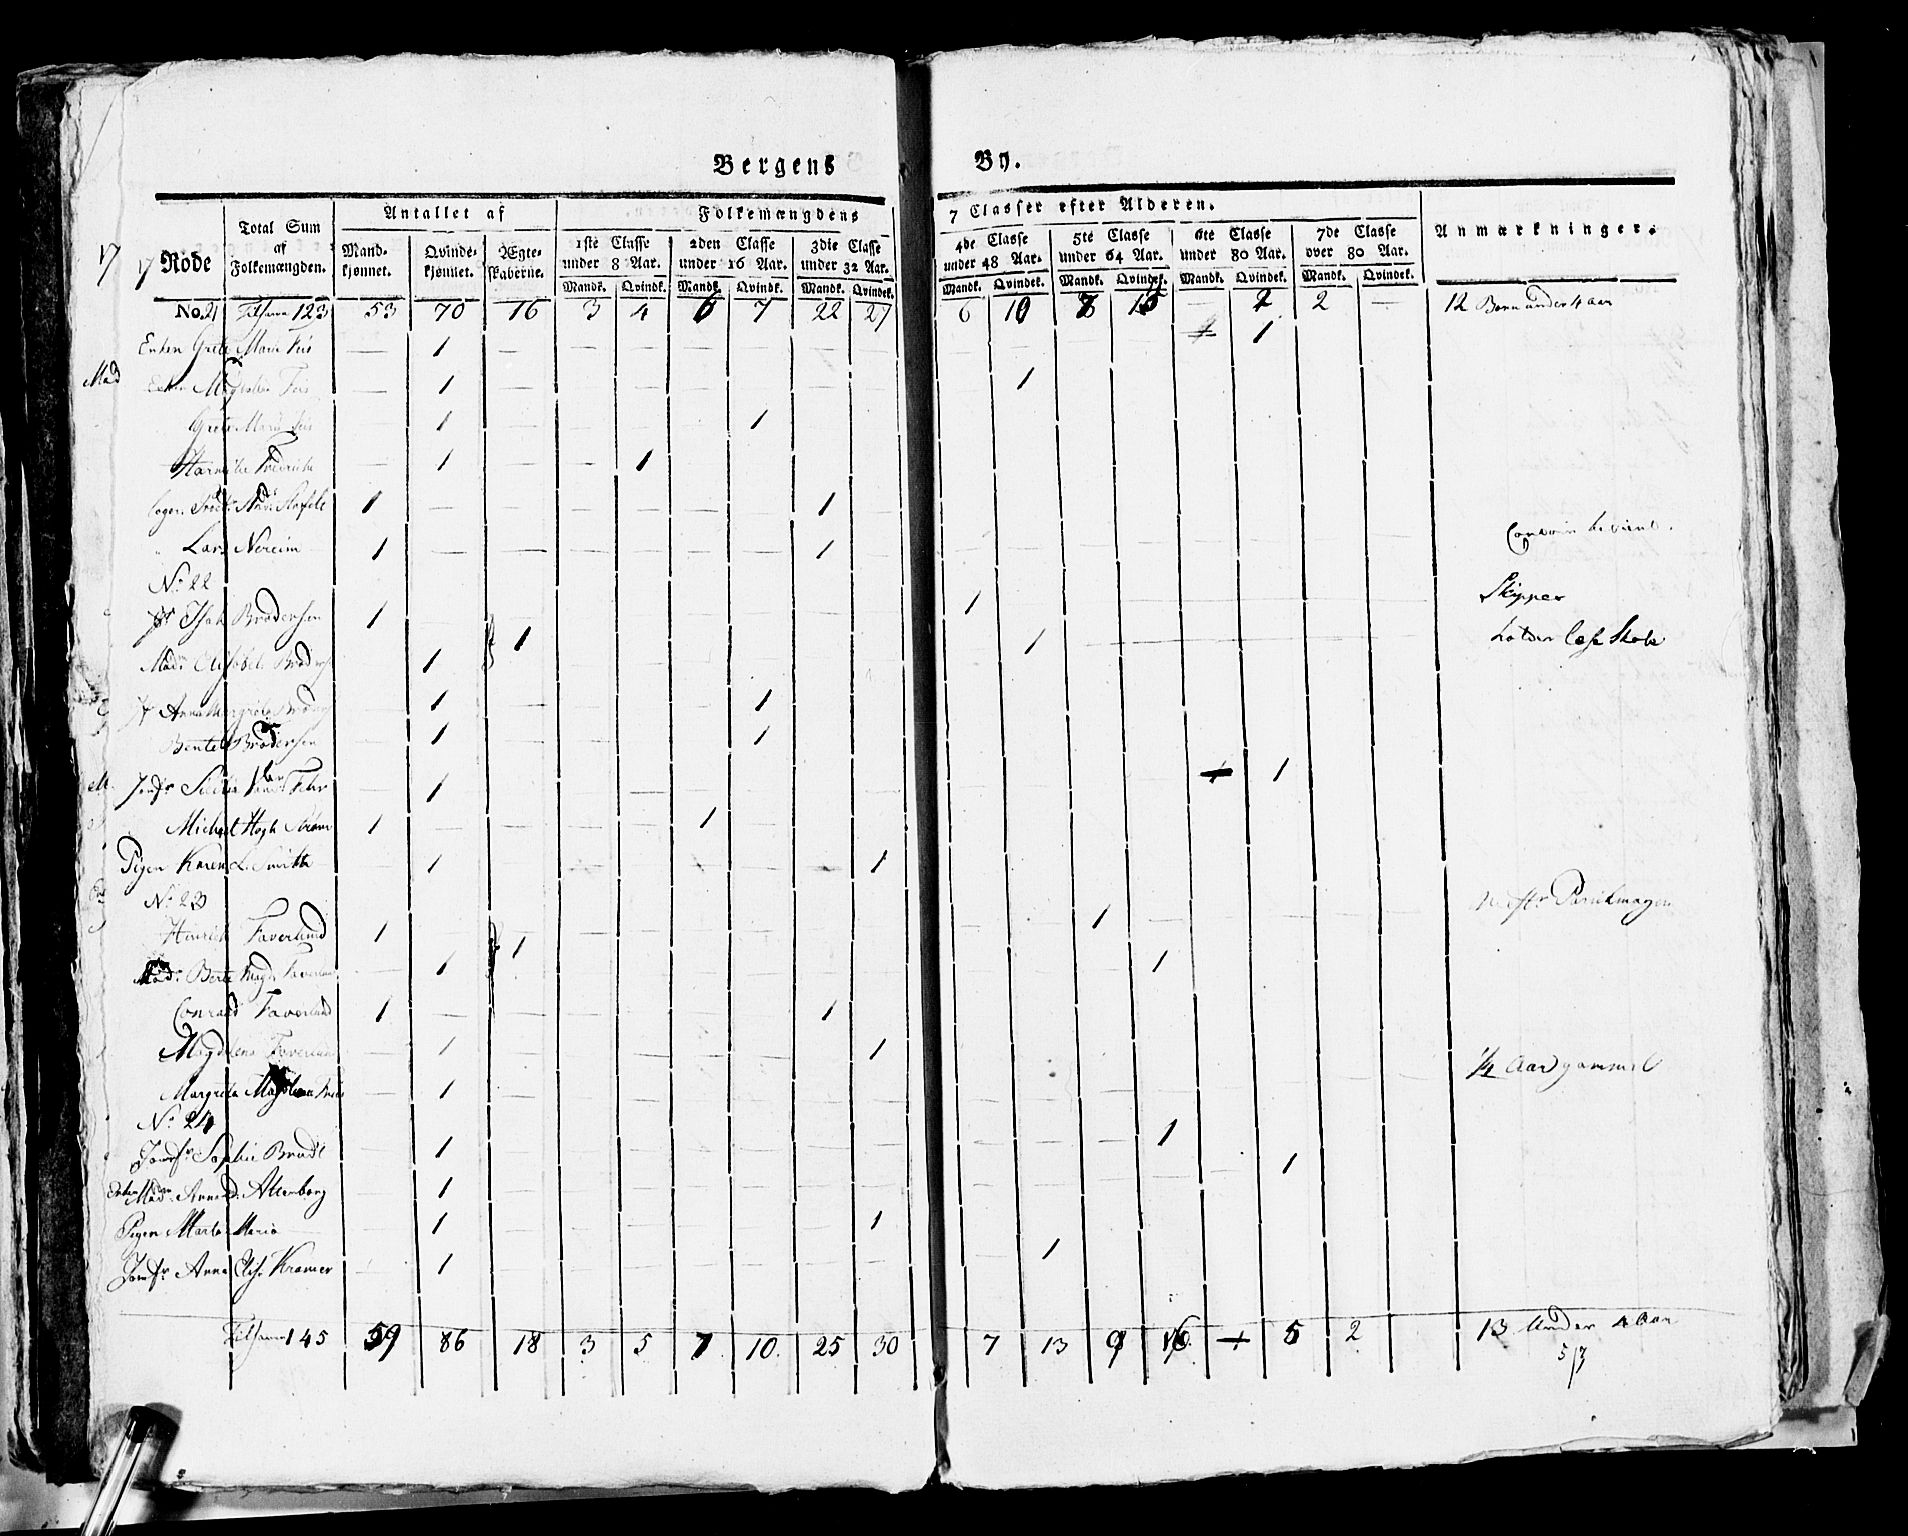 Bergens By.
17
17 Rode
Total Sum af Folkemængden.
Antallet af
Mandkjønnet. Qvindekjønnet. Ægteskaberne.
Folkemængdens 7 Classer efter Alderen.
1ste Classe under 8 Aar. 2den Classe under 16 Aar. 3die Classe under 32 Aar. 4de Classe under 48 Aar. 5te Classe under 64 Aar. 6te Classe under 80 Aar. 7de Classe over 80 Aar.
Anmærkninger.
Mandk. Qvindk. Mandk. Qvindk. Mandk. Qvindek. Mandk. Qvindk. Mandk. Qvindk. Mandk. Qvindk. Mandk. Qvindek.
No. 21 Tilsam 123 53 70 16 3 4 6 7 22 27 6 10 8 15 — 2 2 — 12 Børn under 4 aar
Enken Grete Marie Feis — 1 — 1
Mad Enken Magdalen Feis — 1 — 1
Grete Marie Feis — 1 — 1
Fredriche — 1 — 1
1 — 1
Lars Nereim 1 — 1
No. 22
Isak Brodersen 1 1 Skipper
Mad. Elisabet Broders 1 1 1 holder læse Skole
Anna Margrete Broders 1 1
Bente Brodersen 1 1
Jomfr. Fehr 1 1
Michael Hogh Strøm 1 1
Pigen Karen L. Smith 1 1
No. 23
Hinrich Faverlund 1 1 1 Parükmager
Mad. Berte Magd. Faverlund 1 1
Conrad Faverlund 1 1
Magdlena Faverlund 1 1
Margreta Magdlena Friis 1 1/4 Aar gammel
No. 24
Jomfr. Sophie Brødt 1 1
Enken Mad. Anna D. Altenborg 1 1
Pigen Marte Maria 1 1
Jomfr. Anna Elisa Kramer 1 1
Tilsam 145 59 86 18 3 5 7 10 25 30 7 13 9 16 5 2 13 Under 4 Aar